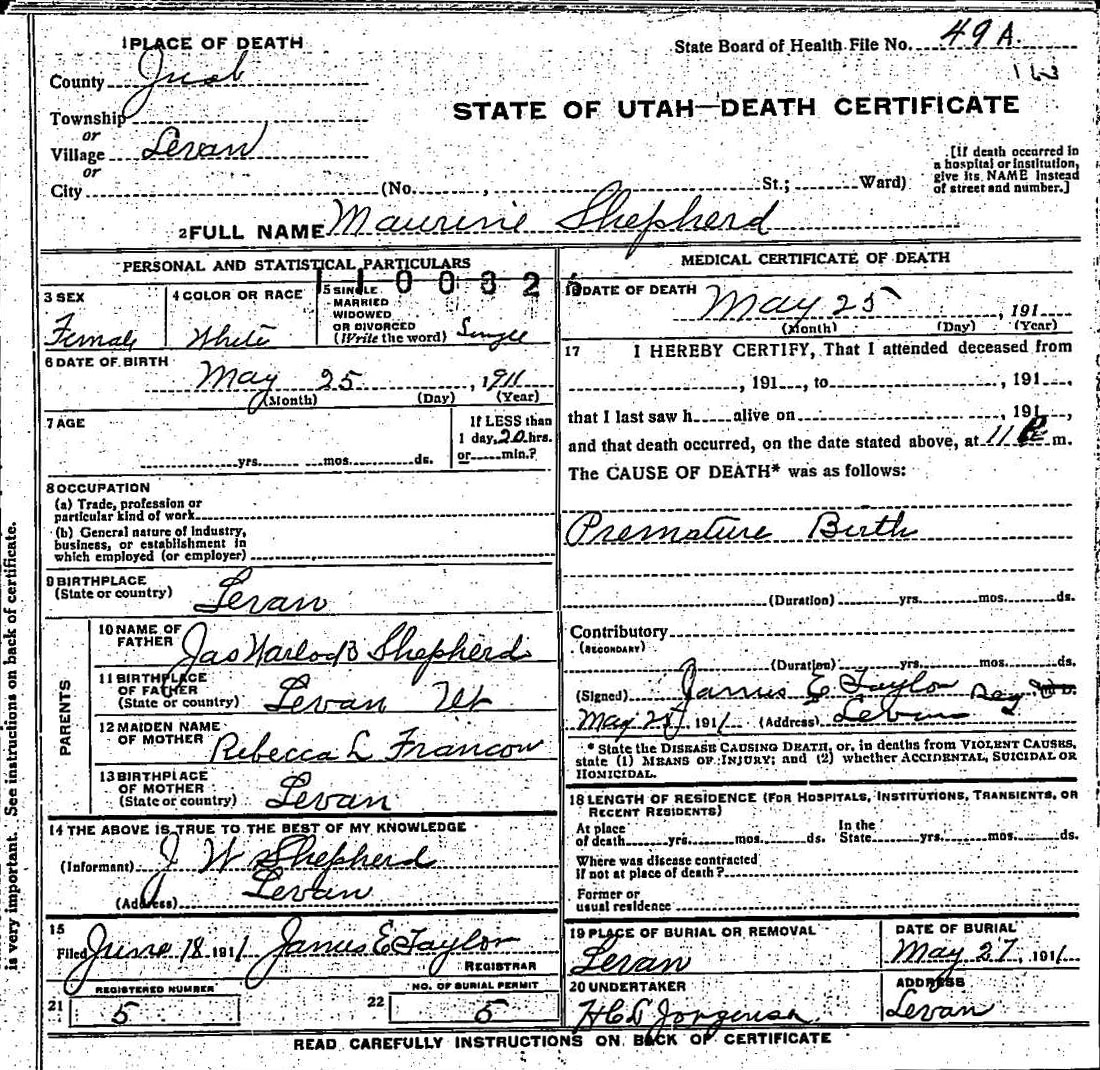 1 PLACE OF DEATH
State Board of Health File No. 49 A.
County Juab
163
STATE OF UTAH—DEATH CERTIFICATE
Township
or
Village Levan
or
City (No. , St.; Ward)
[If death occurred in
a hospital or institution,
give its NAME instead
of street and number.]
2 FULL NAME Maurine Shepherd
PERSONAL AND STATISTICAL PARTICULARS
3 SEX
Female
4 COLOR OR RACE
White
5 SINGLE
MARRIED
WIDOWED
OR DIVORCED
(Write the word) Single
6 DATE OF BIRTH
May 25, 1911
(Month) (Day) (Year)
7 AGE
yrs. mos. ds.
If LESS than
1 day, 20 hrs.
or min.?
8 OCCUPATION
(a) Trade, profession or
particular kind of work
(b) General nature of industry,
business, or establishment in
which employed (or employer)
9 BIRTHPLACE
(State or country) Levan
PARENTS
10 NAME OF
FATHER Jas Shepherd
11 BIRTHPLACE
OF FATHER
(State or country) Levan Ut
12 MAIDEN NAME
OF MOTHER Rebecca L
13 BIRTHPLACE
OF MOTHER
(State or country) Levan
14 THE ABOVE IS TRUE TO THE BEST OF MY KNOWLEDGE
(Informant) J W Shepherd
(Address) Levan
15
Filed June 18 1911 James E Taylor
REGISTRAR
REGISTERED NUMBER
21 5
NO. OF BURIAL PERMIT
22 5
MEDICAL CERTIFICATE OF DEATH
16 DATE OF DEATH
May 25, 191
(Month) (Day) (Year)
17 I HEREBY CERTIFY, That I attended deceased from
, 191 , to , 191 ,
that I last saw h alive on , 191 ,
and that death occurred, on the date stated above, at 11 P m.
The CAUSE OF DEATH* was as follows:
Premature Birth
(Duration) yrs. mos. ds.
Contributory
(SECONDARY)
(Duration) yrs. mos. ds.
(Signed) James E Taylor Reg
May 25, 1911 (Address) Levan
* State the DISEASE CAUSING DEATH, or, in deaths from VIOLENT CAUSES,
state (1) MEANS OF INJURY; and (2) whether ACCIDENTAL, SUICIDAL OR
HOMICIDAL.
18 LENGTH OF RESIDENCE (FOR HOSPITALS, INSTITUTIONS, TRANSIENTS, OR
RECENT RESIDENTS)
At place
of death yrs. mos. ds.
In the
State yrs. mos. ds.
Where was disease contracted
if not at place of death?
Former or
usual residence
19 PLACE OF BURIAL OR REMOVAL
Levan
DATE OF BURIAL
May 27, 1911
20 UNDERTAKER
Jorgensen
ADDRESS
Levan
READ CAREFULLY INSTRUCTIONS ON BACK OF CERTIFICATE
is very important. See instructions on back of certificate.